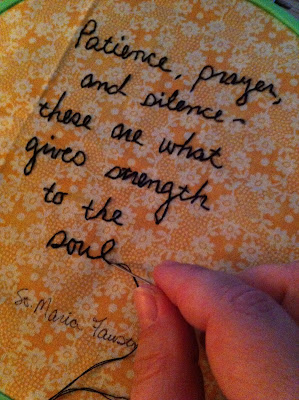 Patience, prayer,
and silence -
these are what
gives strength
to the
soul
St. Maria Faus